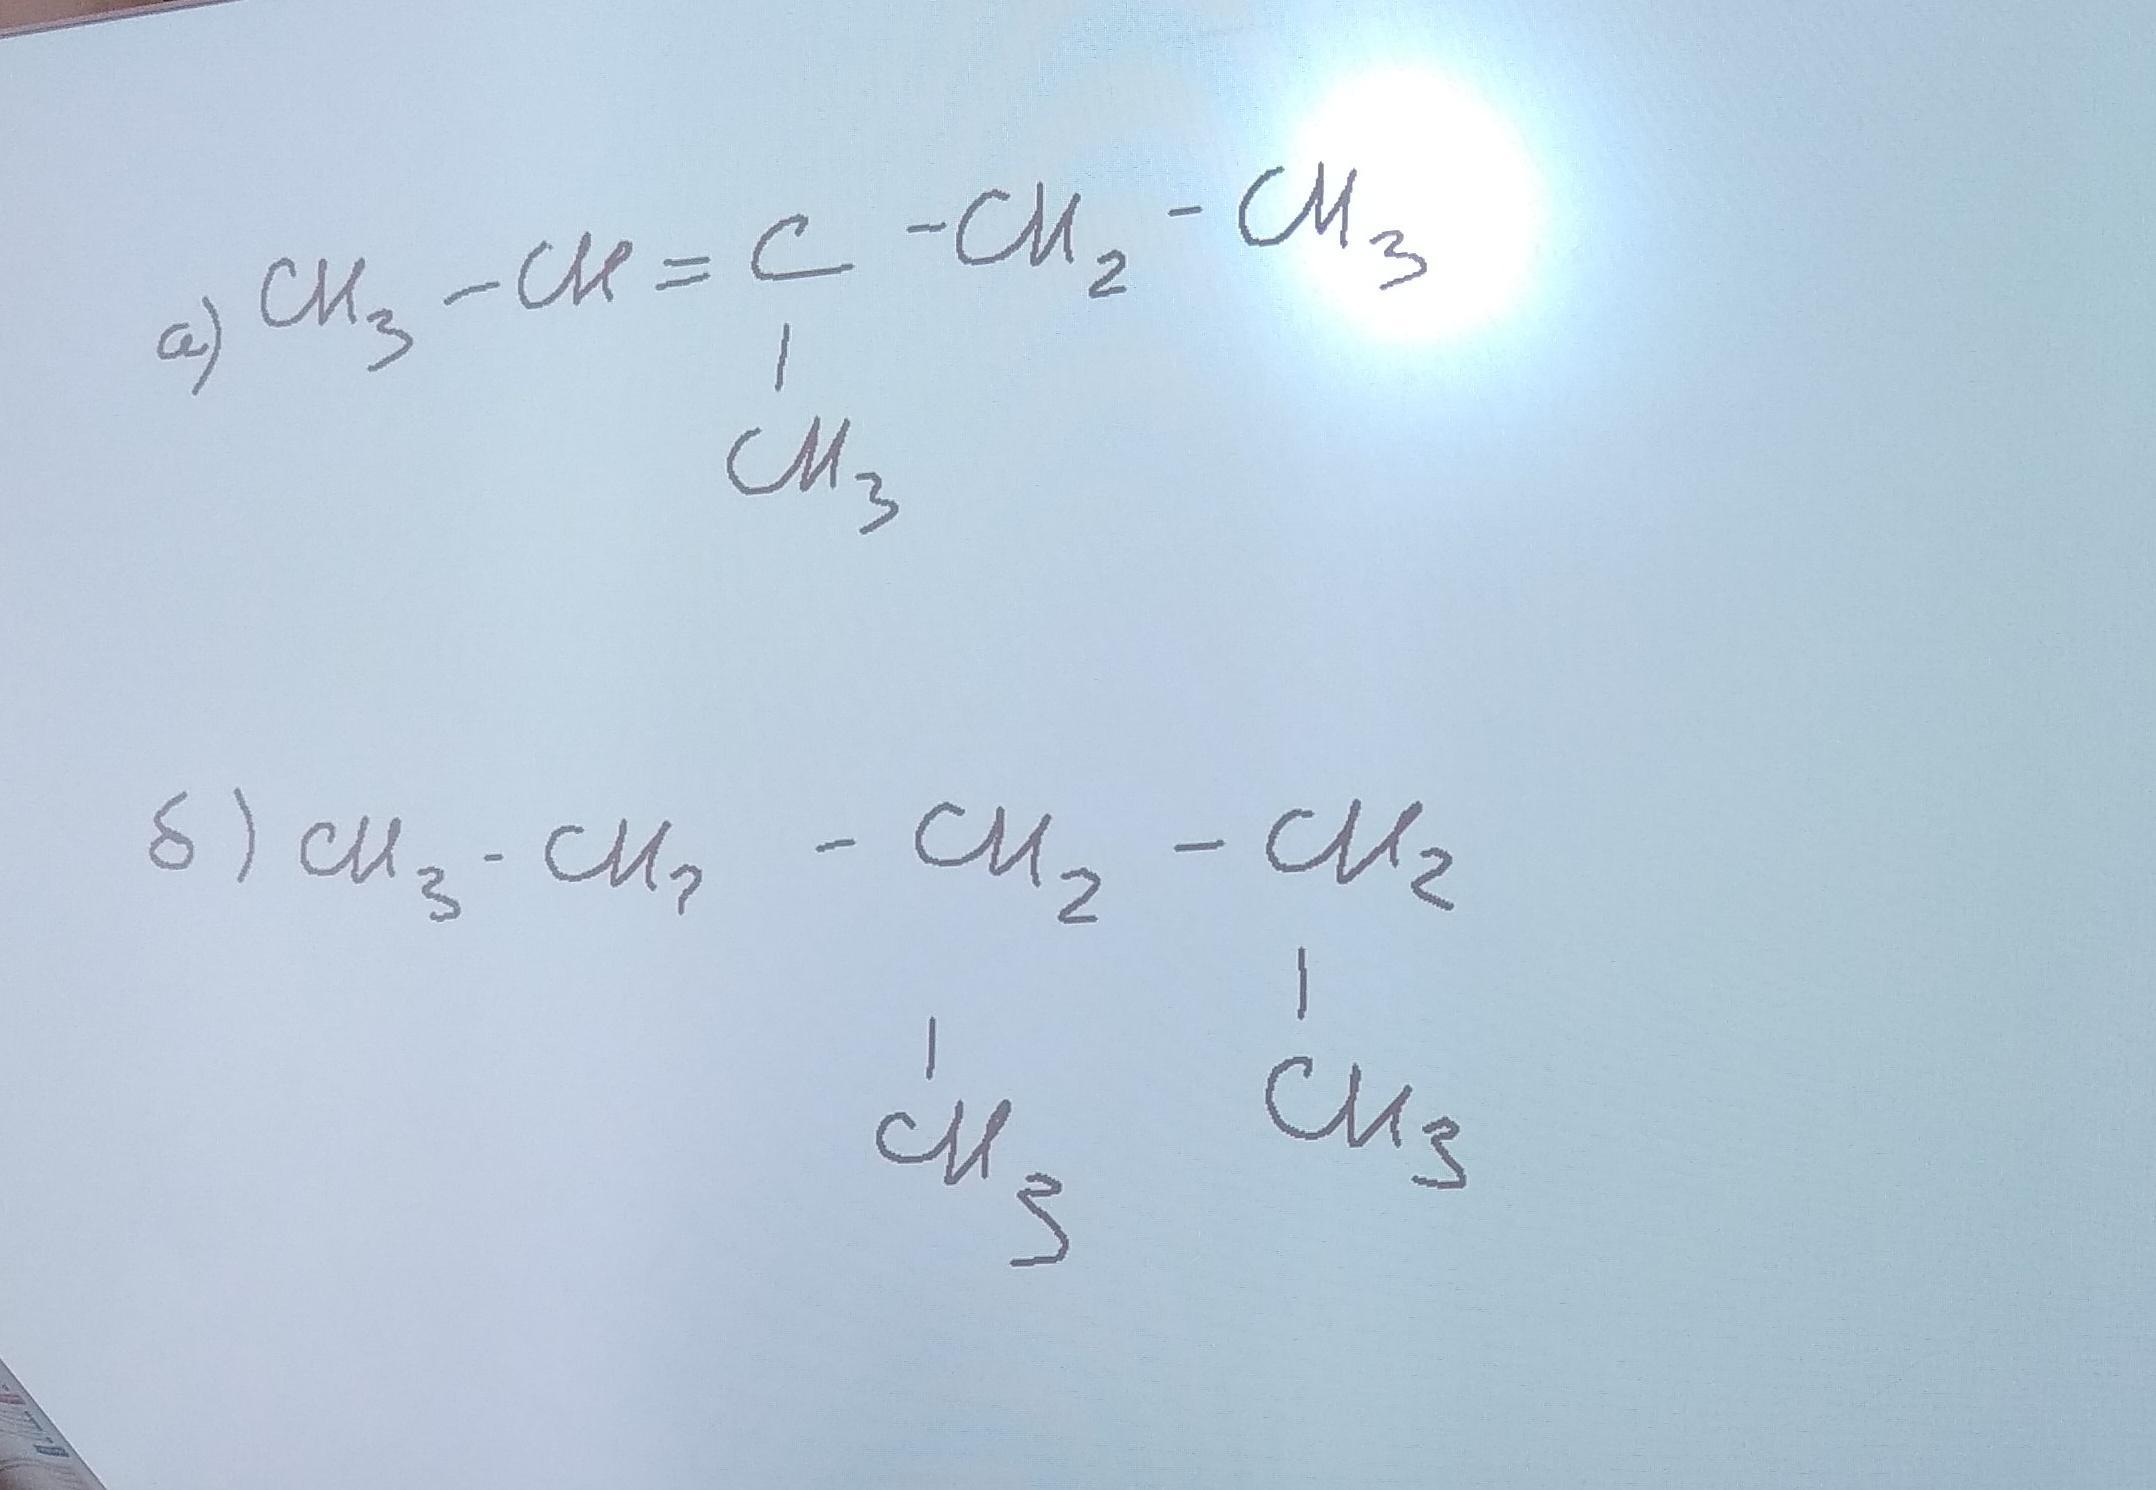 а) CH₃ - CH = C - CH₂ - CH₃
|
CH₃
б) CH₃ - CH₂ - CH₂ - CH₂
| |
CH₃ CH₃